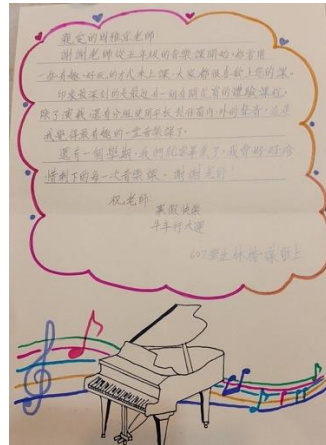 親愛的周楨宗老師:
謝謝老師從三年級的音樂課開始,都會用
一些有趣、好玩的方式來上課,大家都很喜歡上您的課。
印象最深刻的是最近有一個有關 的體驗課程,
除了 我 還有 使用平板 作 的聲音,這是
我覺得最有趣的一堂音樂課了。
還有一個學期,我們就要畢業了,我會好好珍
惜剩下的每一次音樂課,謝謝老師!
祝老師:
寒假快樂
牛年行大運
607學生林 敬上